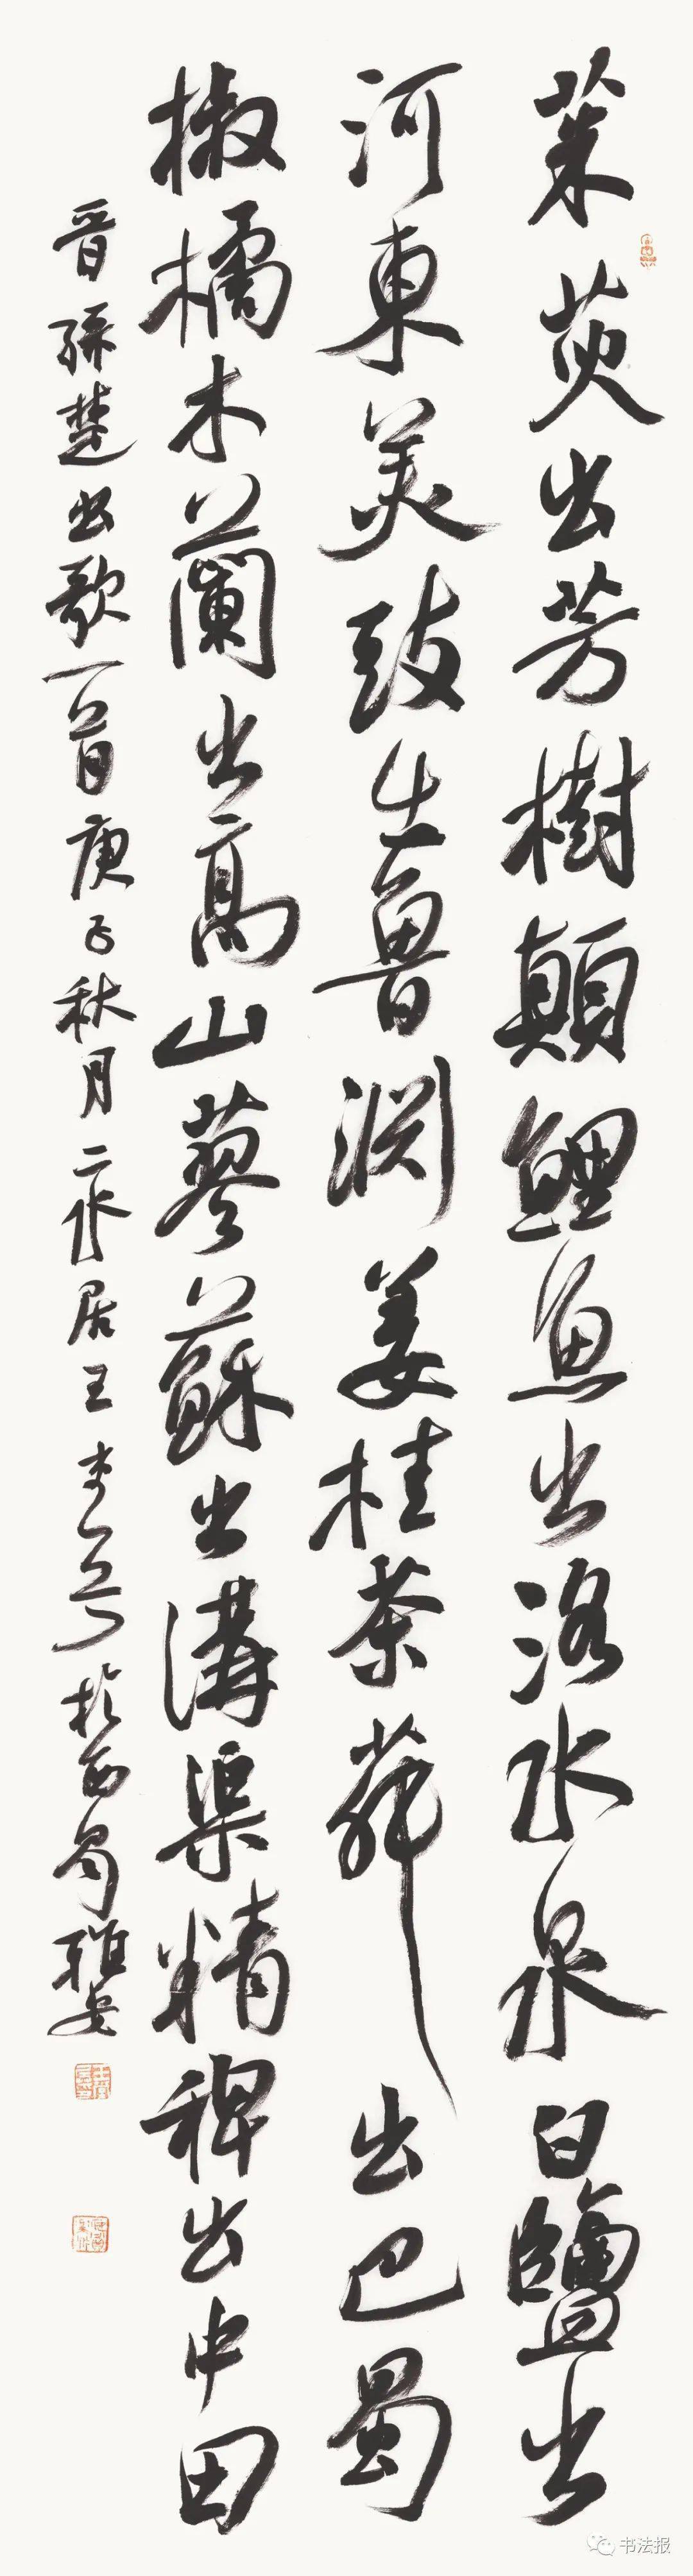 茱萸出芳樹顛鯉魚出洛水泉白鹽出
河東美豉出魯淵姜桂茶荈出巴蜀
椒橘木蘭出高山蓼蘇出溝渠精稗出中田
晉孫楚出歌一首庚子秋月二居王於西蜀雅安
书法报